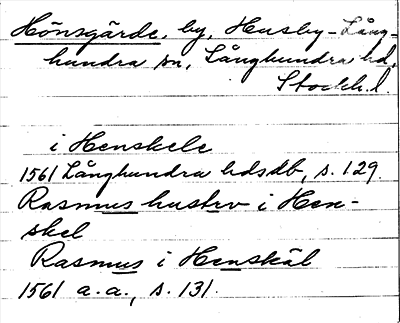 Hönsgärde, by, Husby-Lång-
hundra sn, Långhundra hd,
Stockh.l.
i Henskele
1561 Långhundra hdsdb, s. 129.
Rasmus hustrv i Hen-
skel
Rasmus i Henskäl
1561 a.a., s. 131.